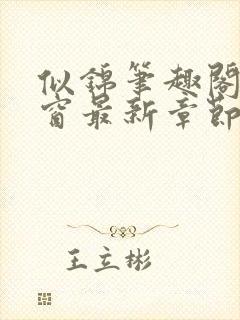 似锦笔趣阁
窗最新章节
王立彬